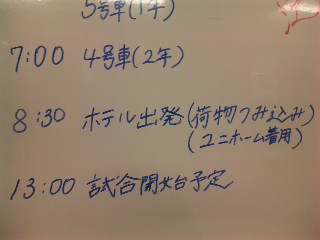 5号車(1年)
7:00 4号車(2年)
8:30 ホテル出発(荷物つみ込み)
(ユニホーム着用)
13:00 試合開始予定